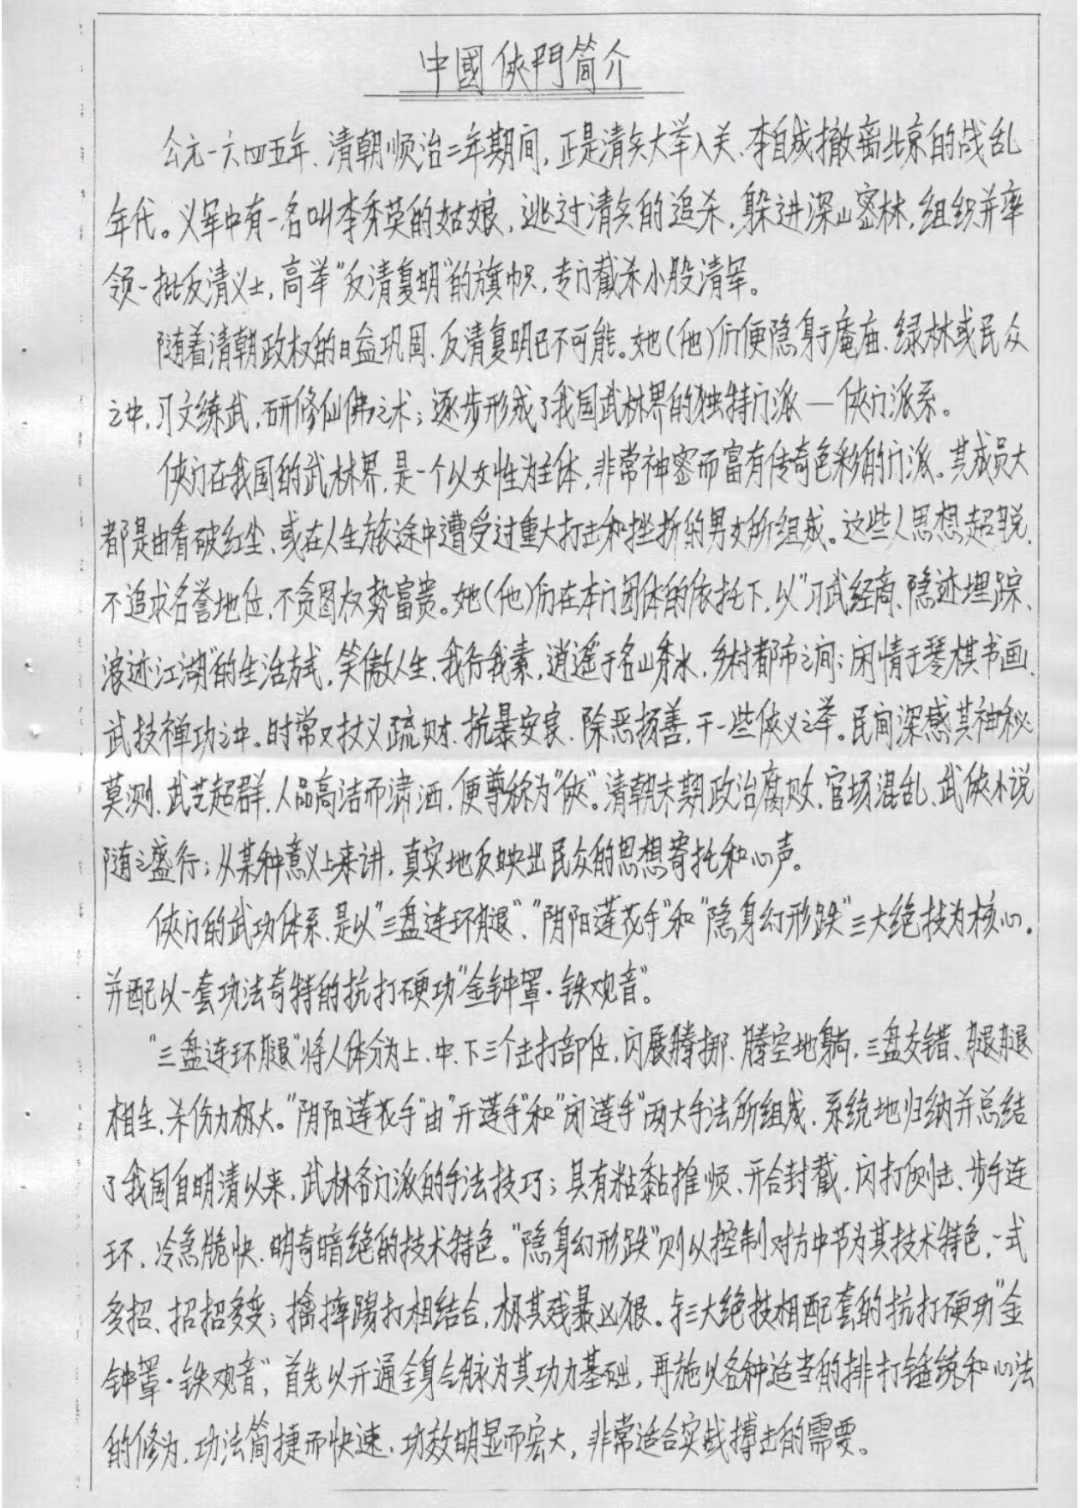 中國俠門简介
公元一六四五年、清朝顺治二年期间，正是清兵大举入关、李自成撤离北京的战乱
年代。义军中有一名叫李秀英的姑娘，逃过清兵的追杀，躲进深山密林，组织并率
领一批反清义士，高举“反清复明”的旗帜，专门截杀小股清军。
随着清朝政权的日益巩固、反清复明已不可能。她(他)们便隐身于庵庙、绿林或民众
之中，习文练武，研修仙佛之术；逐步形成了我国武林界的独特门派—侠门派系。
侠门在我国的武林界，是一个以女性为主体，非常神密而富有传奇色彩的门派。其成员大
都是由看破红尘、或在人生旅途中遭受过重大打击和挫折的男女所组成。这些人思想超脱、
不追求名誉地位，不贪图权势富贵。她(他)们在本门团体的依托下，以“习武经商、隐迹埋踪、
浪迹江湖”的生活方式，笑傲人生，我行我素，逍遥于名山秀水，乡村都市之间；闲情于琴棋书画、
武技禅功之中。时常又扶义疏财、抗暴安良、除恶扬善，干一些侠义之举。民间深感其神秘
莫测、武艺超群，人品高洁而潇洒，便尊称为“侠”。清朝末期政治腐败、官场混乱、武侠小说
随之盛行；从某种意义上来讲，真实地反映出民众的思想寄托和心声。
侠门的武功体系、是以“三盘连环腿”、“阴阳莲花手”和“隐身幻形跌”三大绝技为核心。
并配以一套功法奇特的抗打硬功“金钟罩·铁观音”。
“三盘连环腿”将人体分为上、中、下三个击打部位，闪展腾挪、腾空地躺，三盘交错、腿腿
相生、杀伤力极大。“阴阳莲花手”由“开莲手”和“闭莲手”两大手法所组成，系统地归纳并总结
了我国自明清以来，武林各门派的手法技巧；具有粘黏推顺、开合封截、闪打侧击、步手连
环、冷急脆快、明奇暗绝的技术特色。“隐身幻形跌”则以控制对方中节为其技术特色，一式
多招、招招多变；擒摔踢打相结合，极其残暴凶狠。与三大绝技相配套的抗打硬功“金
钟罩·铁观音”，首先以开通全身气脉为其功力基础，再施以各种适当的排打锤练和心法
的修为，功法简捷而快速、功效明显而宏大，非常适合实战搏击的需要。